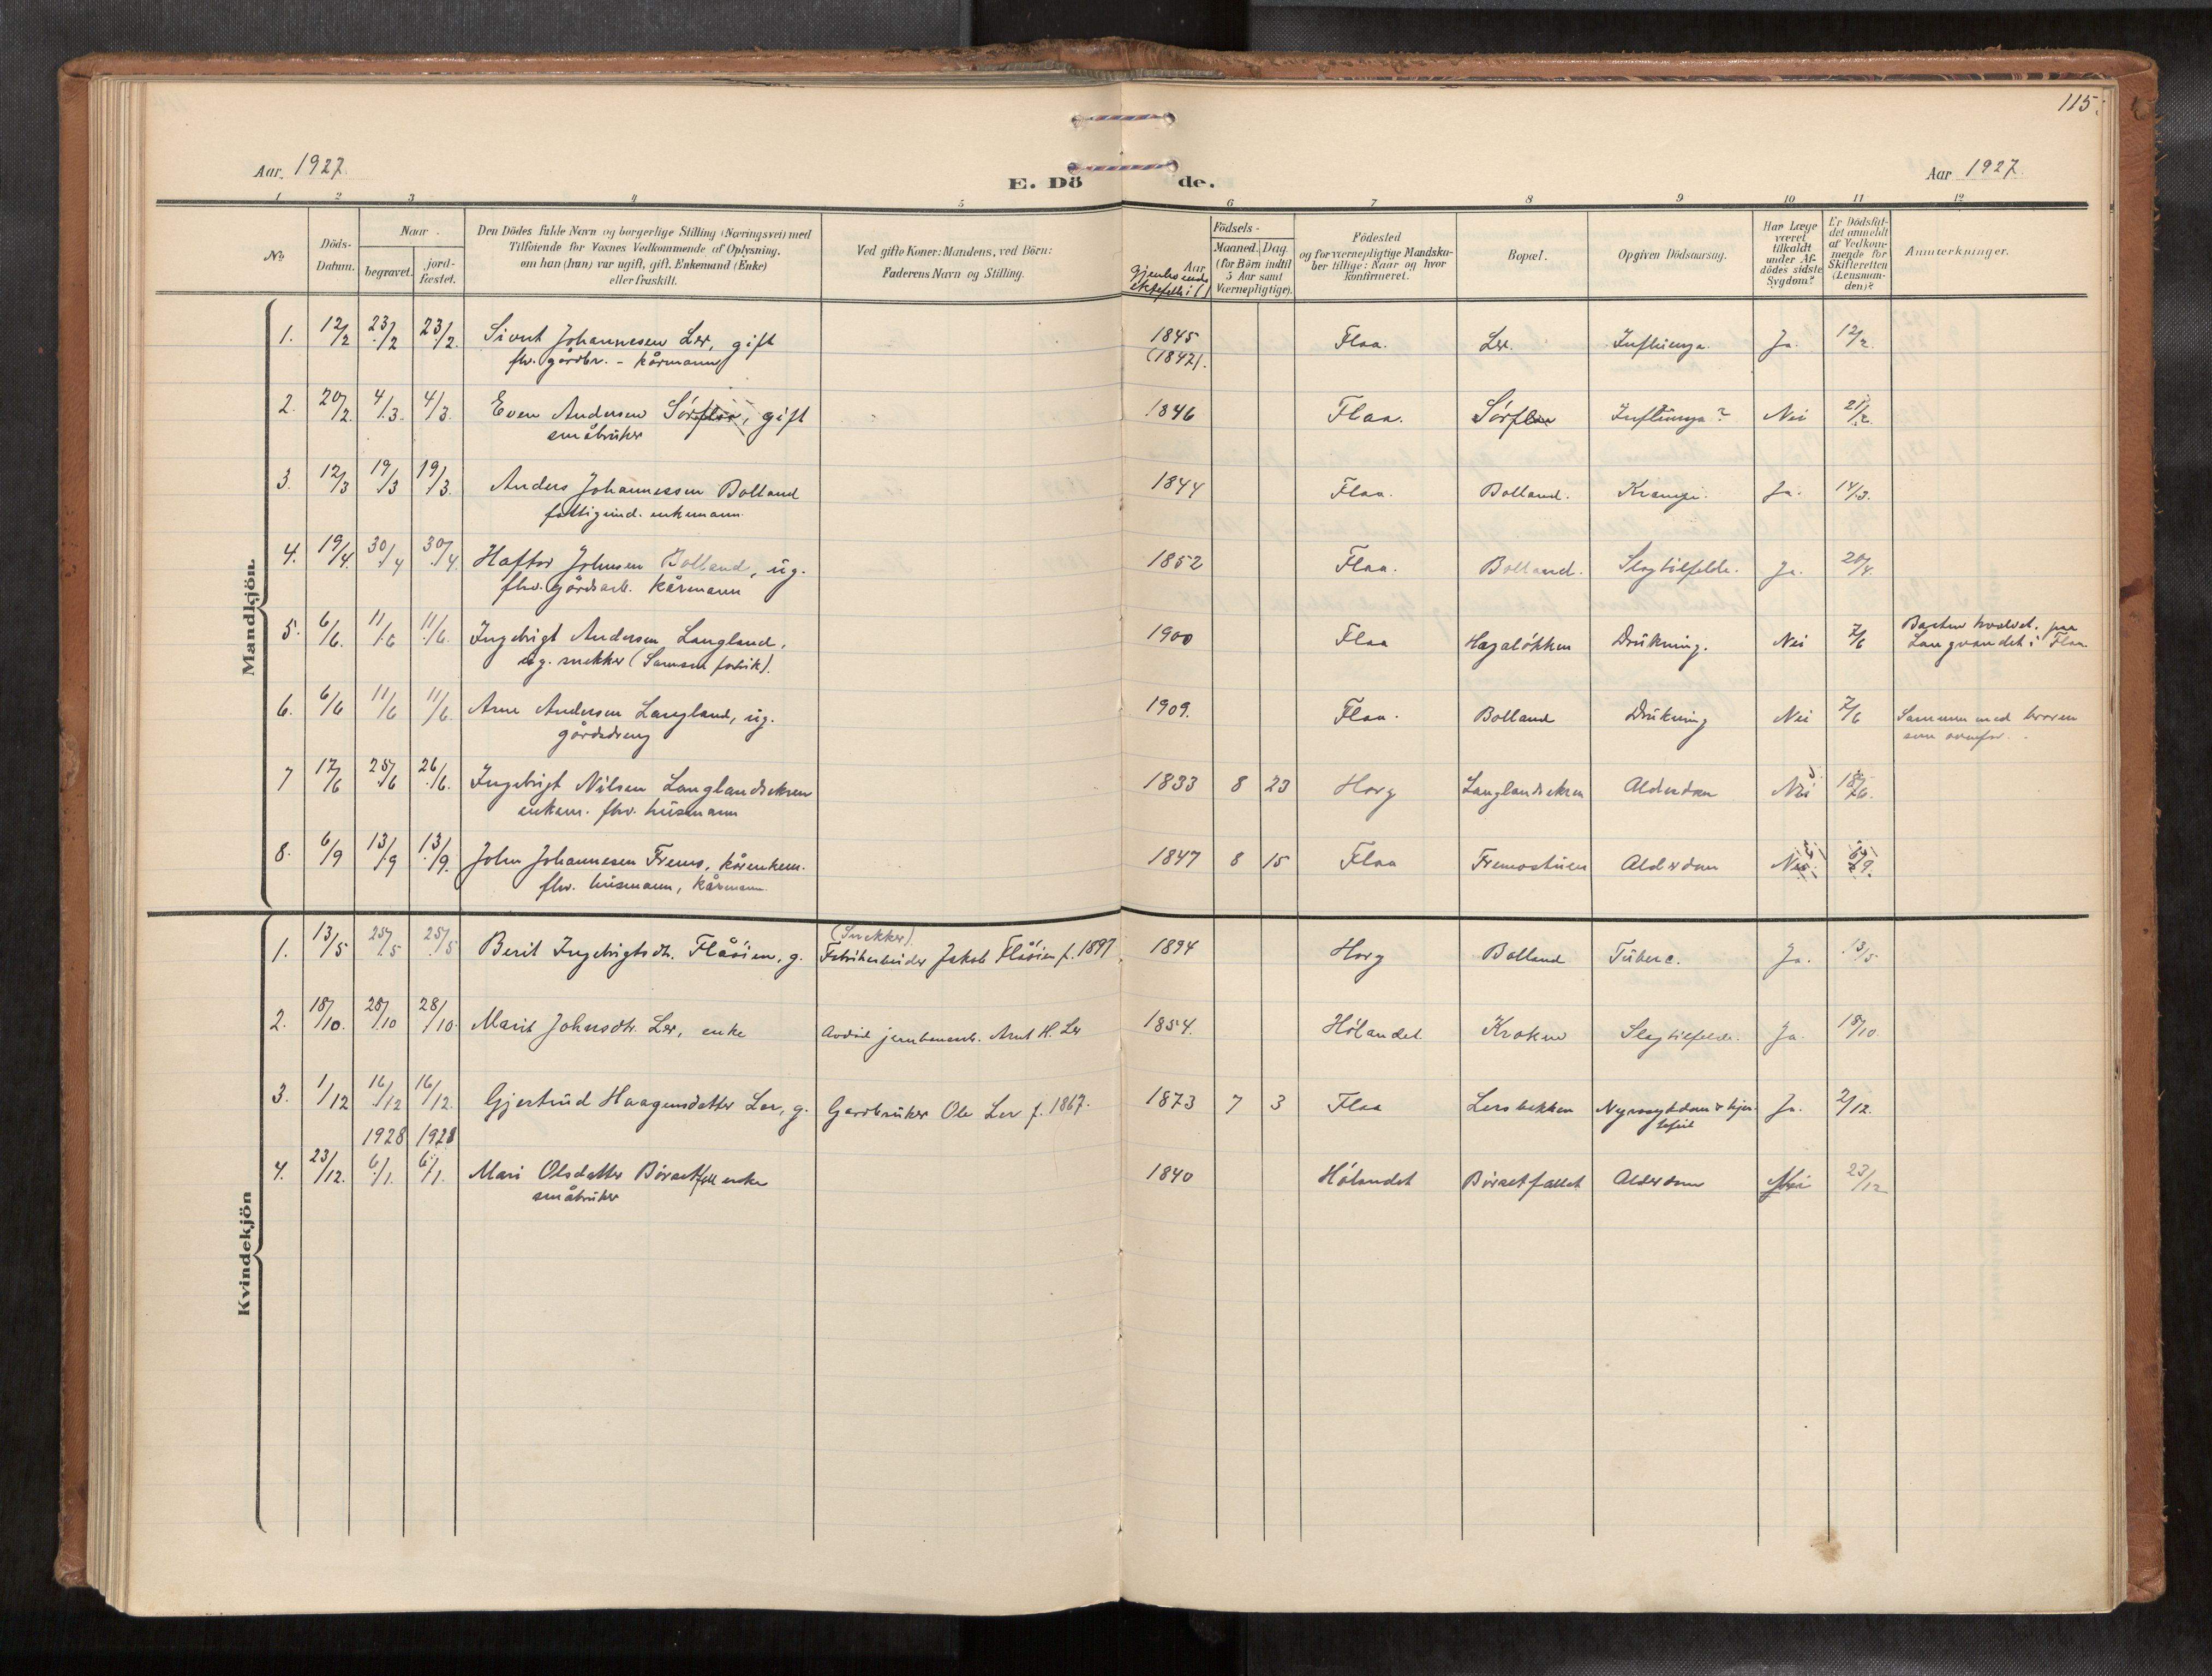 115.
Aar. 1927.
E. Dö de.
Aar 1927.
1 2 3 4 5 6 7 8 9 10 11 12
No
Döds-Datum.
Naar
begravet.
jord-fæstet.
Den Dödes fulde Navn og borgerlige Stilling (Næringsvei) med
Tilföiende for Voxnes Vedkommende af Oplysning,
om han (hun) var ugift, gift, Enkemand (Enke)
eller fraskilt.
Ved gifte Koner: Mandens, ved Börn:
Faderens Navn og Stilling.
Födsels-
Aar
ektefelle i ( )
Maaned. Dag.
(for Börn indtil
5 Aar samt
Værnepligtige).
Födested
og for værnepligtige Mandska-
ber tillige: Naar og hvor
konfirmeret.
Bopæl.
Opgiven Dödsaarsag.
Har Læge
været
tilkaldt
under Af-
dödes sidste
Sygdom?
Er Dödsfal-
det anmeldt
af Vedkom-
mende for
Skifteretten
(Lensman-
den)?
Anmærkninger.
Mandkjön.
1. 12/2 23/2 23/2. Sivert Johannesen Ler, gift 1845 Flaa. Ler. Influenza. Ja. 12/2.
fhv. gårdbr. - kårmann (1842).
2. 20/2. 4/3. 4/3. Even Andersen Sörflaa, gift 1846 Flaa. Sörflaa Influenza? Nei 21/2.
småbruker
3. 12/3 19/3 19/3. Anders Johannessen Bolland 1844 Flaa. Bolland. Krampe. Ja. 14/3.
fattigund. enkemann.
4. 19/4. 30/4 30/4. Haftor Johnsen Bolland, ug. 1852 Flaa. Bolland. Slagtilfelde. Ja. 20/4.
fhv. gårdsarb. kårmann
5. 6/6. 11/6 11/6. Ingebrigt Andersen Langland, 1900 Flaa Hagaløkken Drukning. Nei 7/6 Baaten hvelvet paa
ug. snekker (Samsen fabrik). Langvandet i Flaa.
6. 6/6 11/6 11/6. Arne Andersen Langland, ug. 1909. Flaa. Bolland Drukning Nei 7/6 Sammen med broren
gårdsdreng som ovenfor.
7 17/6 25/6 26/6. Ingebrigt Nilsen Langlandsekren 1833 8 23 Horg Langlandsekren Alderdom Nei 18/6.
enkem. fhv. husmann
8. 6/9 13/9 13/9. John Johannesen Fremo, kårenkem. 1847 8 15 Flaa Fremostuen Alderdom Nei 9.
fhv. husmann, kårmann.
Kvindekjön
(Snekker).
1. 13/5 25/5 25/5 Berit Ingebrigtsdtr. Flåsien, g. Fabrikarbeider Jakob Flåsien f. 1897 1894 Horg Bolland Tuberc. Ja. 13/5
2. 18/10. 28/10 28/10. Marit Johnsdtr. Ler, enke Avdöd jernbanearb. Arnt H. Ler 1854. Hölandet Kroken Slagtilfelde. Ja. 18/10.
3. 1/12 16/12 16/12. Gjertrud Haagensdatter Ler, g. Gardbruker Ole Ler f. 1867. 1873 7 3 Flaa Lersbekken Nyresykdom & hjer- Ja. 2/12.
tefeil
1928 1928
4. 23/12. 6/1. 6/1. Mari Olsdatter Börsetfall enke 1840 Hölandet Börsetfallet Alderdom Nei 23/12
småbruker